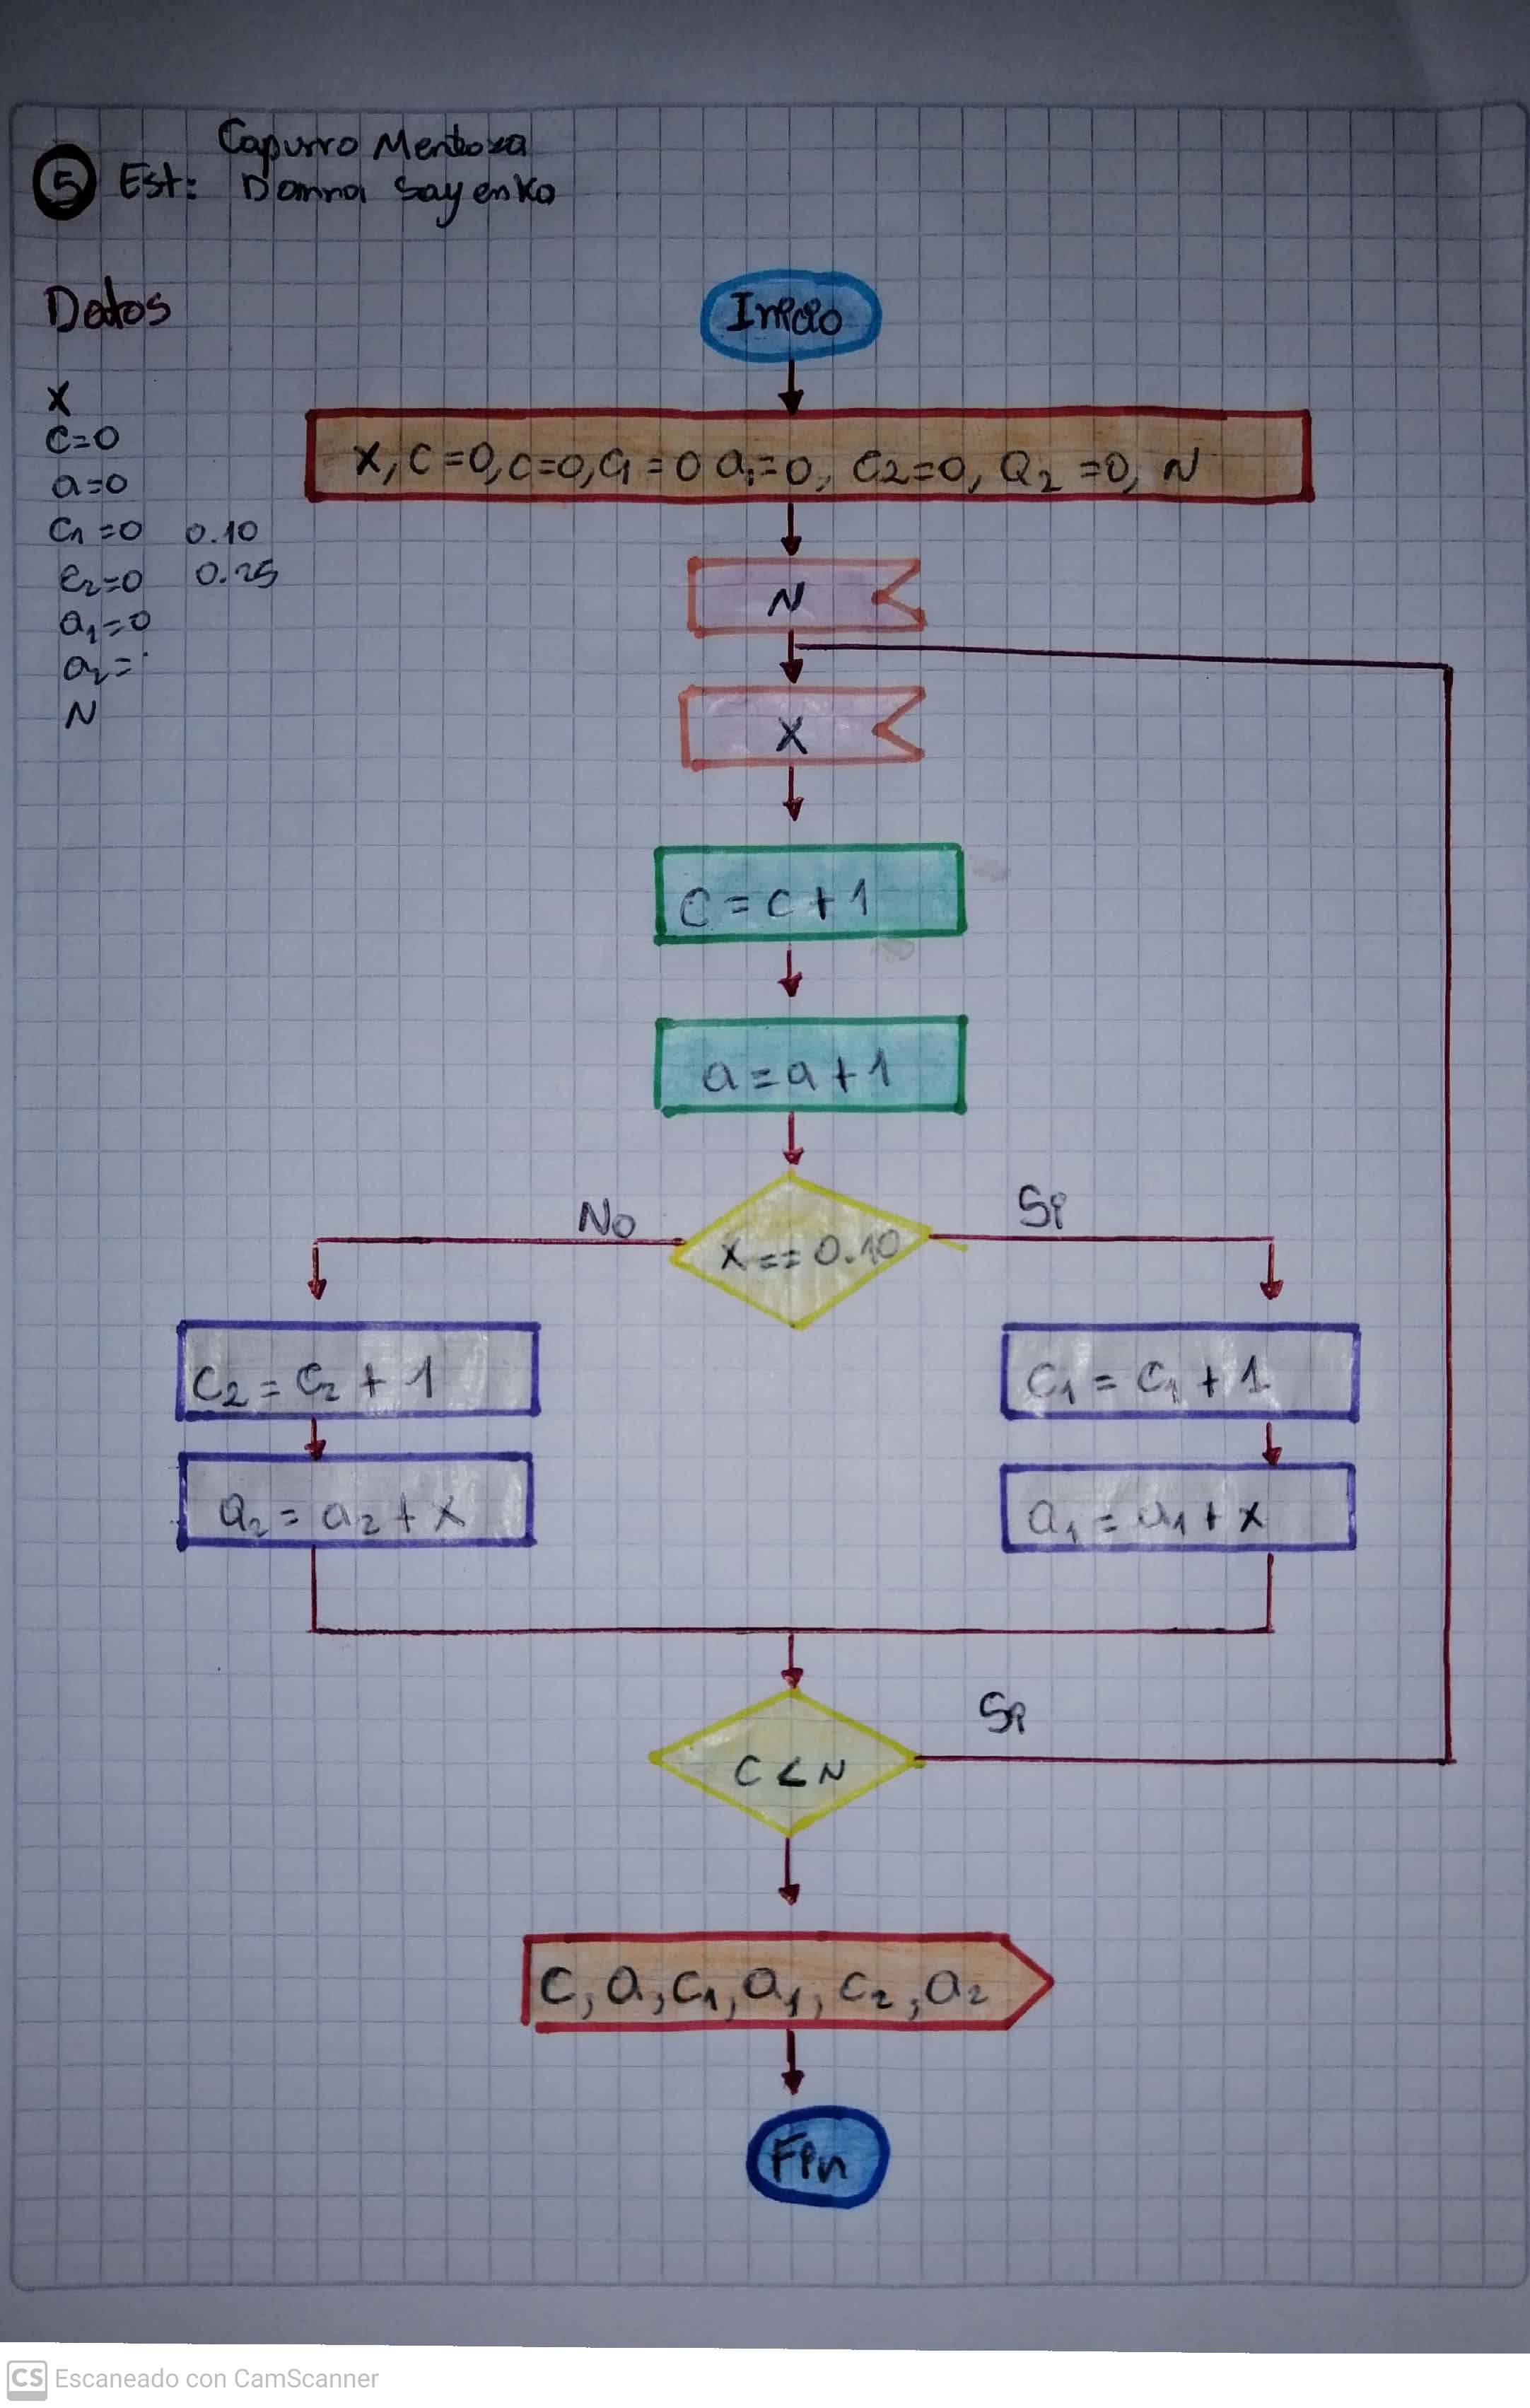 Capurro Mendoza
5 Est: Danna Sayenko
Datos
X
C=0
a=0
C1=0 0.10
C2=0 0.25
a1=0
a2=
N
Inicio
X, C=0, C=0, C1=0 a1=0, C2=0, a2=0, N
N
X
C=C+1
a=a+1
X==0.10
No
Si
C2=C2+1
a2=a2+X
C1=C1+1
a1=a1+X
C<N
Si
C, a, C1, a1, C2, a2
Fin
CS Escaneado con CamScanner